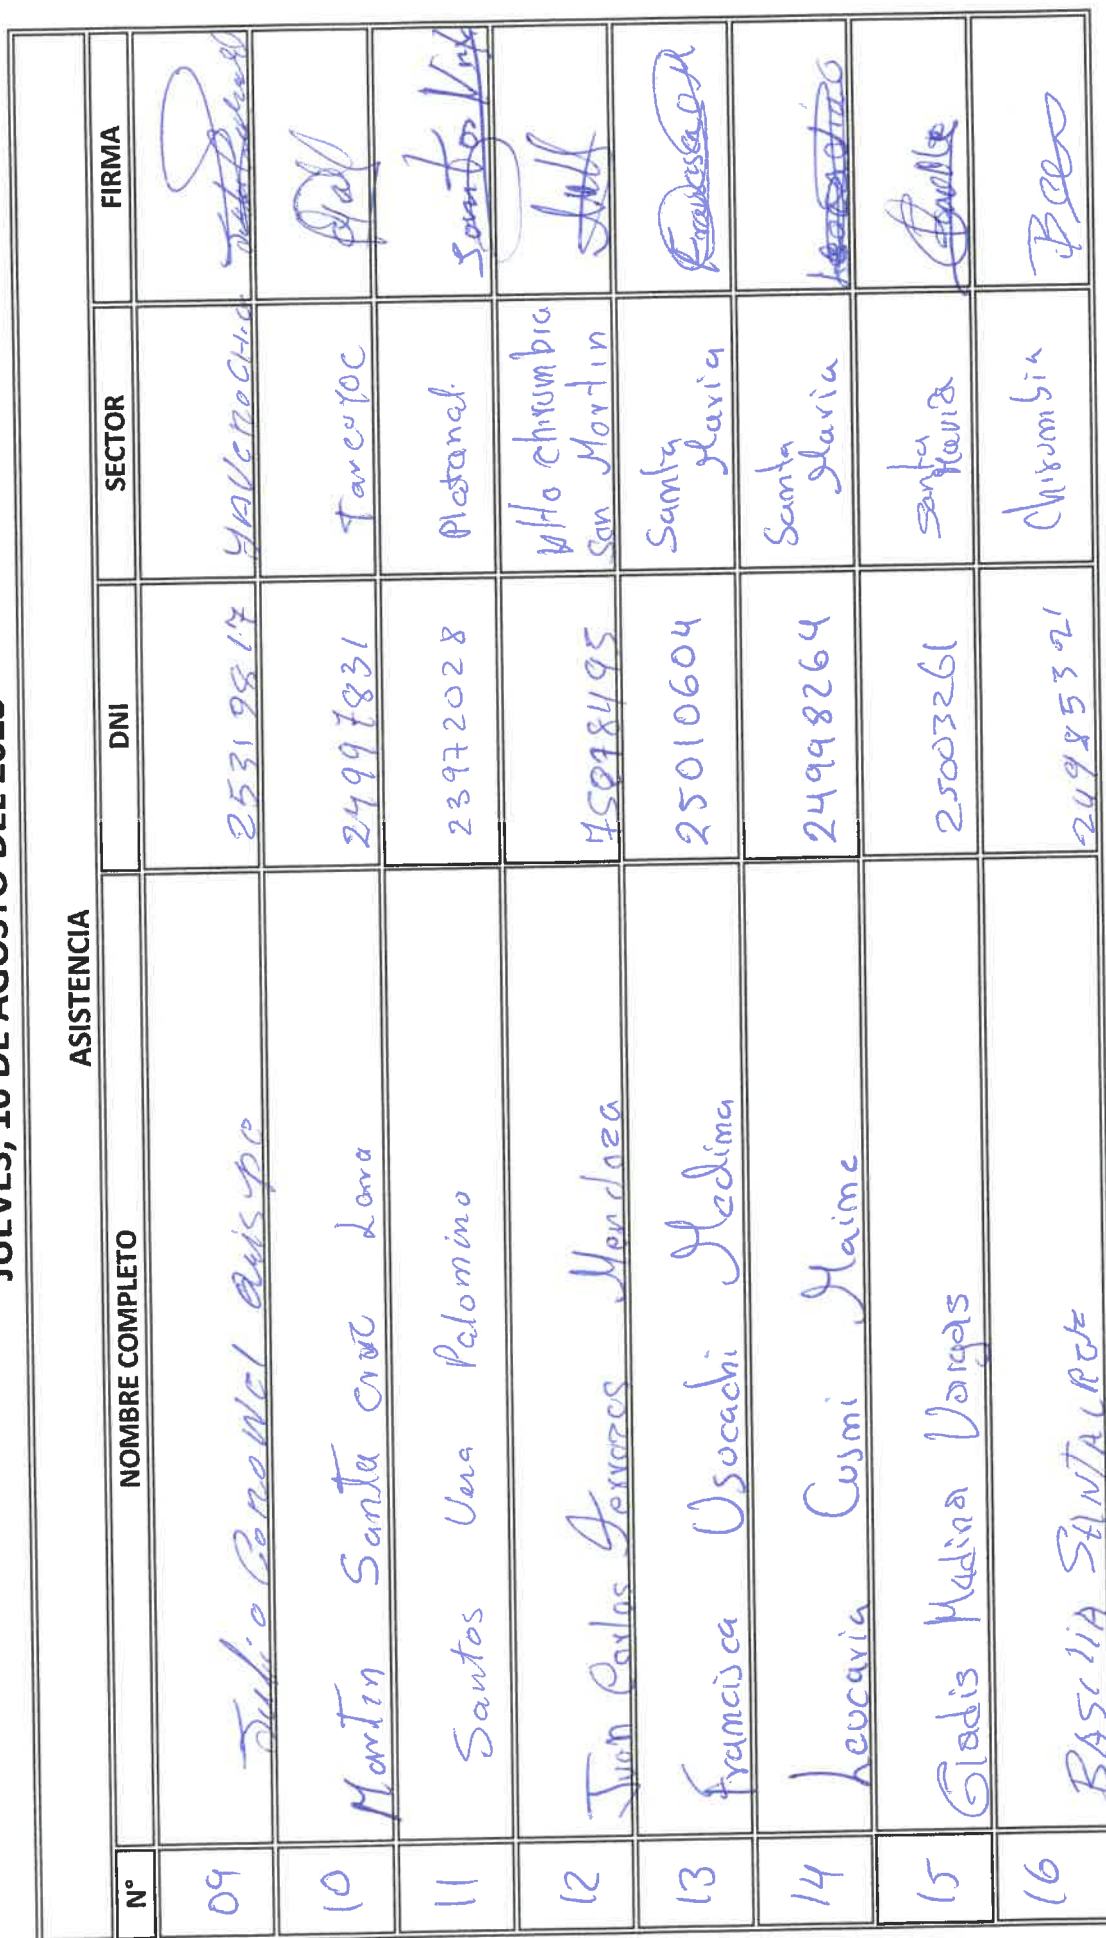 JUEVES, 10 DE AGOSTO DEL 2023
ASISTENCIA
N° NOMBRE COMPLETO DNI SECTOR FIRMA
09 Julio Coronel Quispe 25319817 YAVEROCHICO
10 Martin Santa Cruz Lara 24997831 Tarcuyoc
11 Santos Vera Palomino 23972028 Platanal. Santos
12 Juan Carlos Terrazas Mendoza 75098495 Alto chirumbia
San Martin
13 Francisca Usucachi Medina 25010604 Santa
Maria Francisca
14 Leucaria Cusmi Maime 24998264 Santa
Maria
15 Gladis Madina Vargas 25003261 Santa
Maria
16 BASCLIA SANTA CRUZ 24985321 Chirumbia